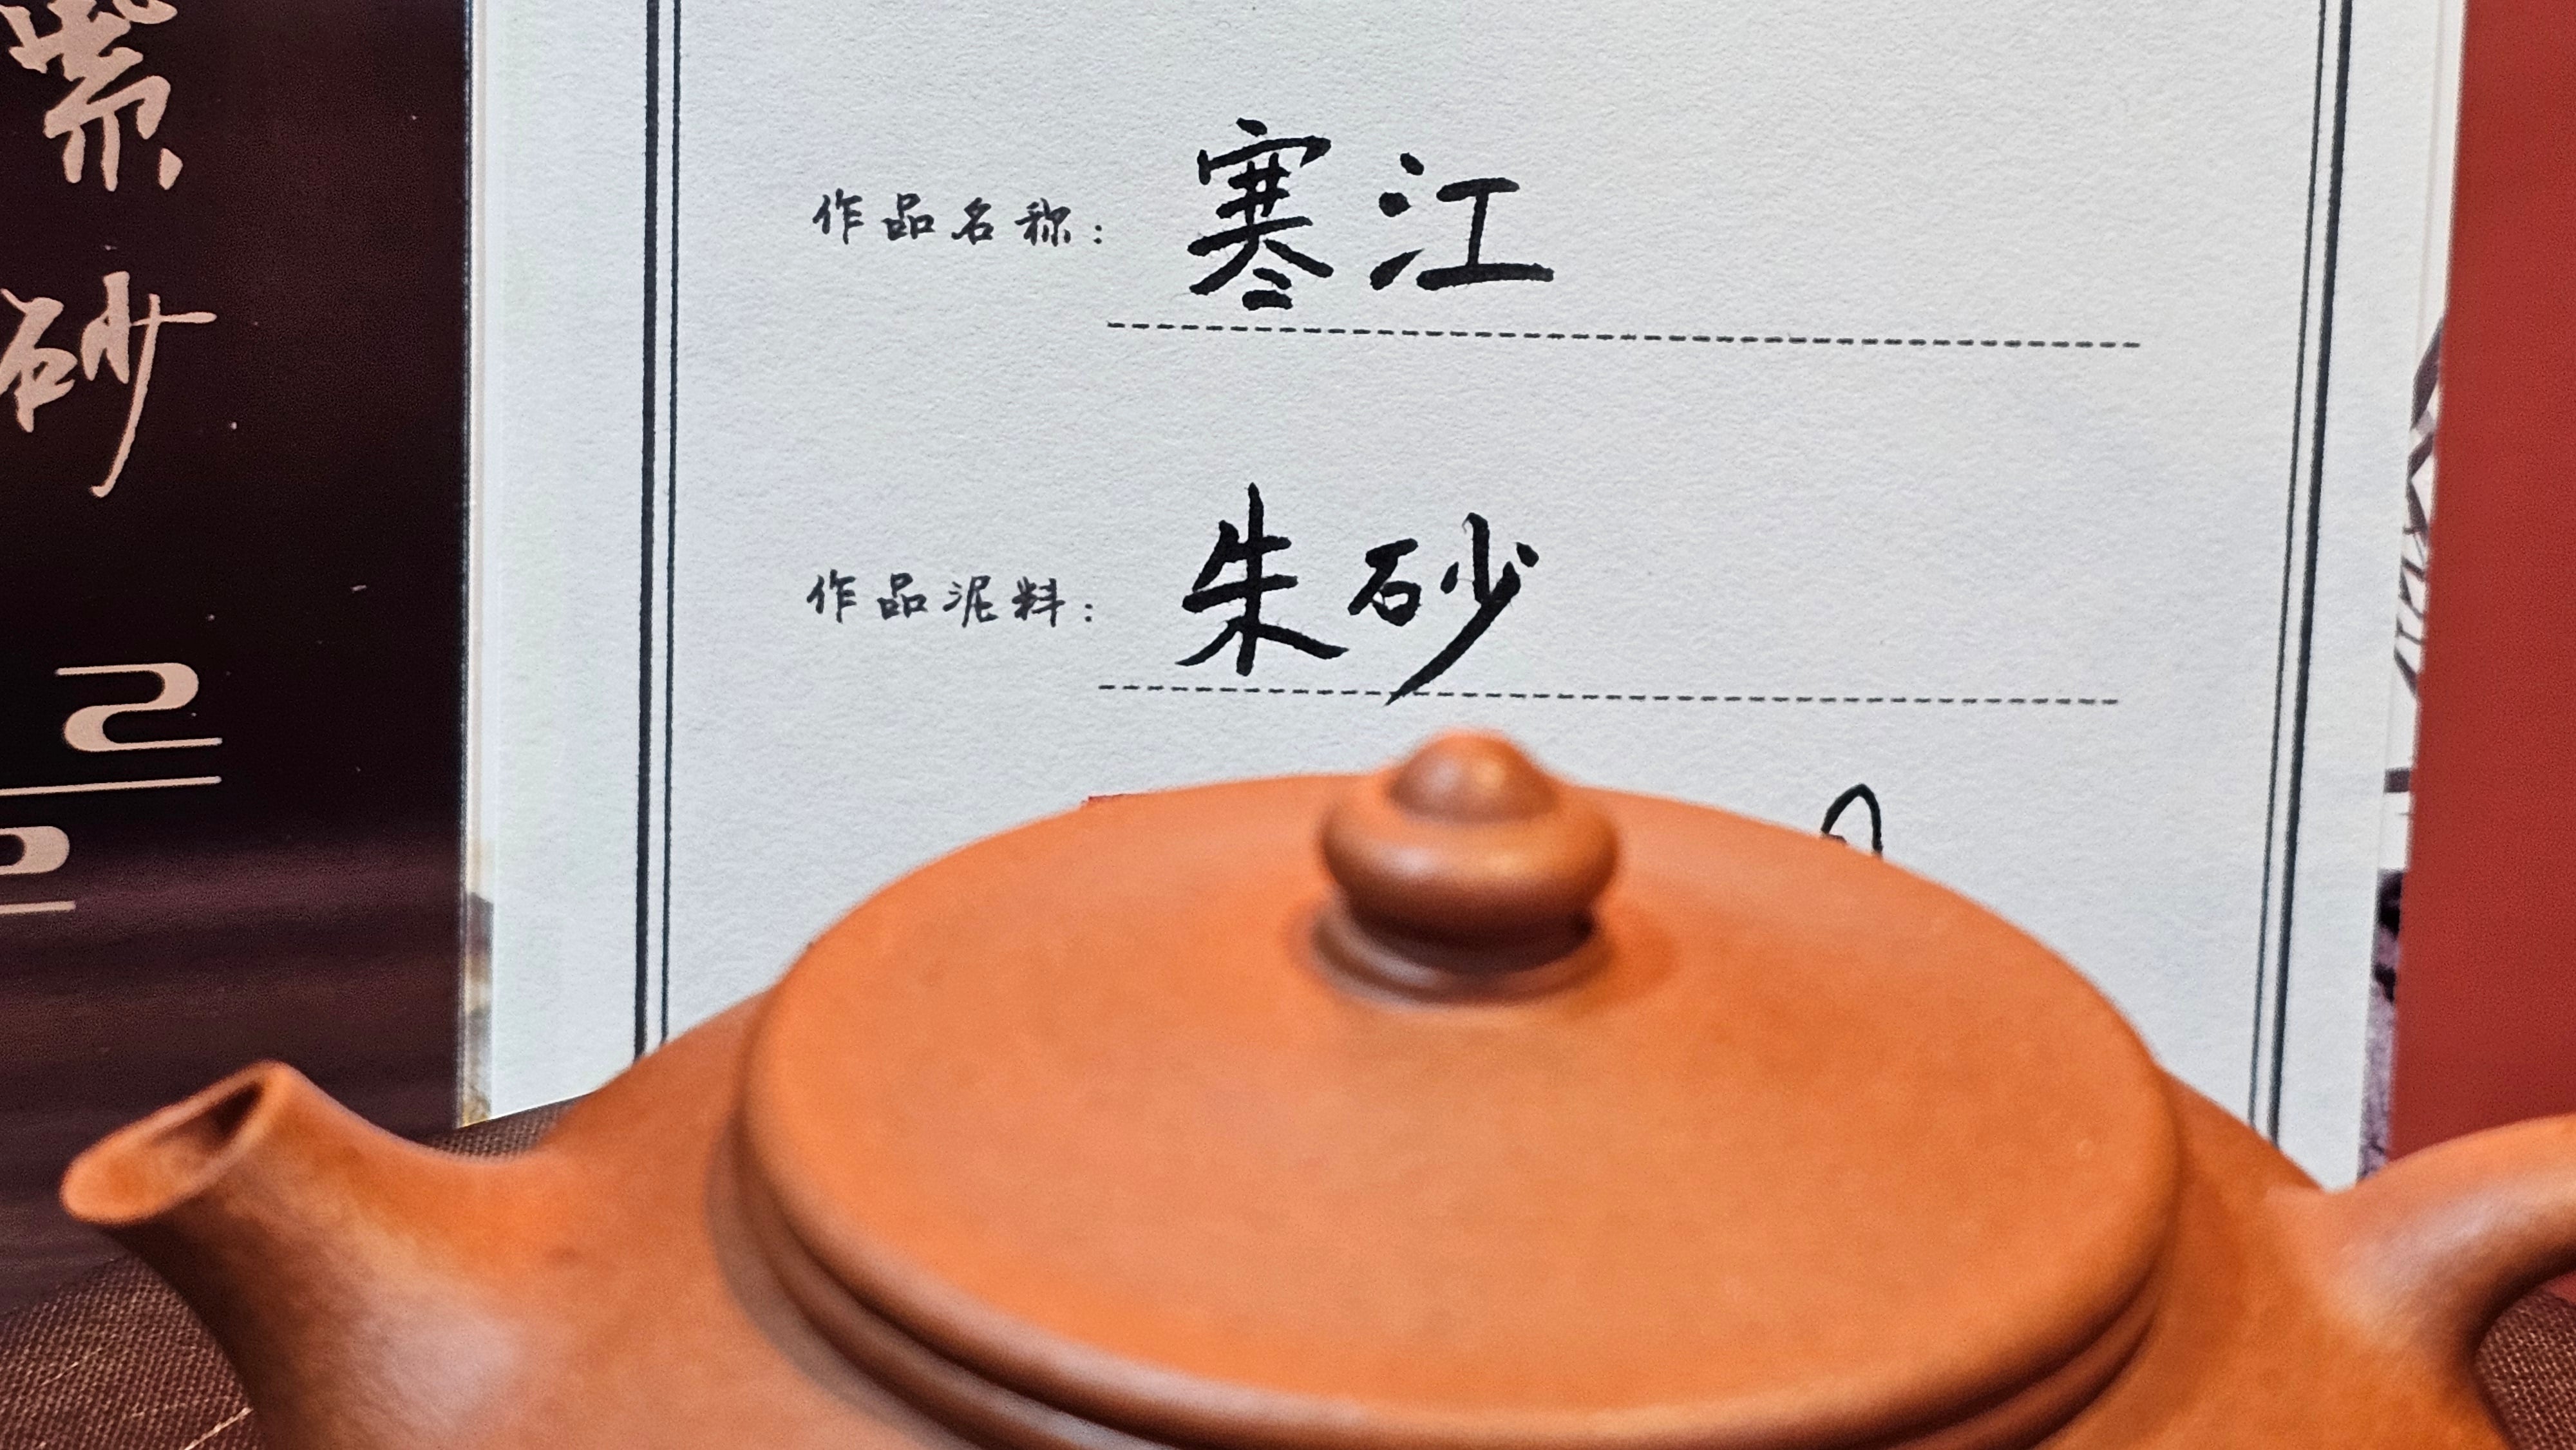 紫砂
作品名称：寒江
作品泥料：朱砂